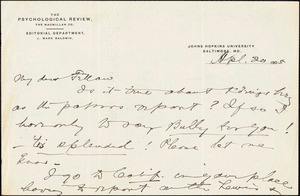 THE
PSYCHOLOGICAL REVIEW,
THE MACMILLAN CO.
EDITORIAL DEPARTMENT,
J. MARK BALDWIN.
JOHNS HOPKINS UNIVERSITY
BALTIMORE, MD.
My dear
Is it true about
as the papers report? If so I
have only to say Bully for you!
— its splendid! Please let me
know —
I go to Calif. in your place